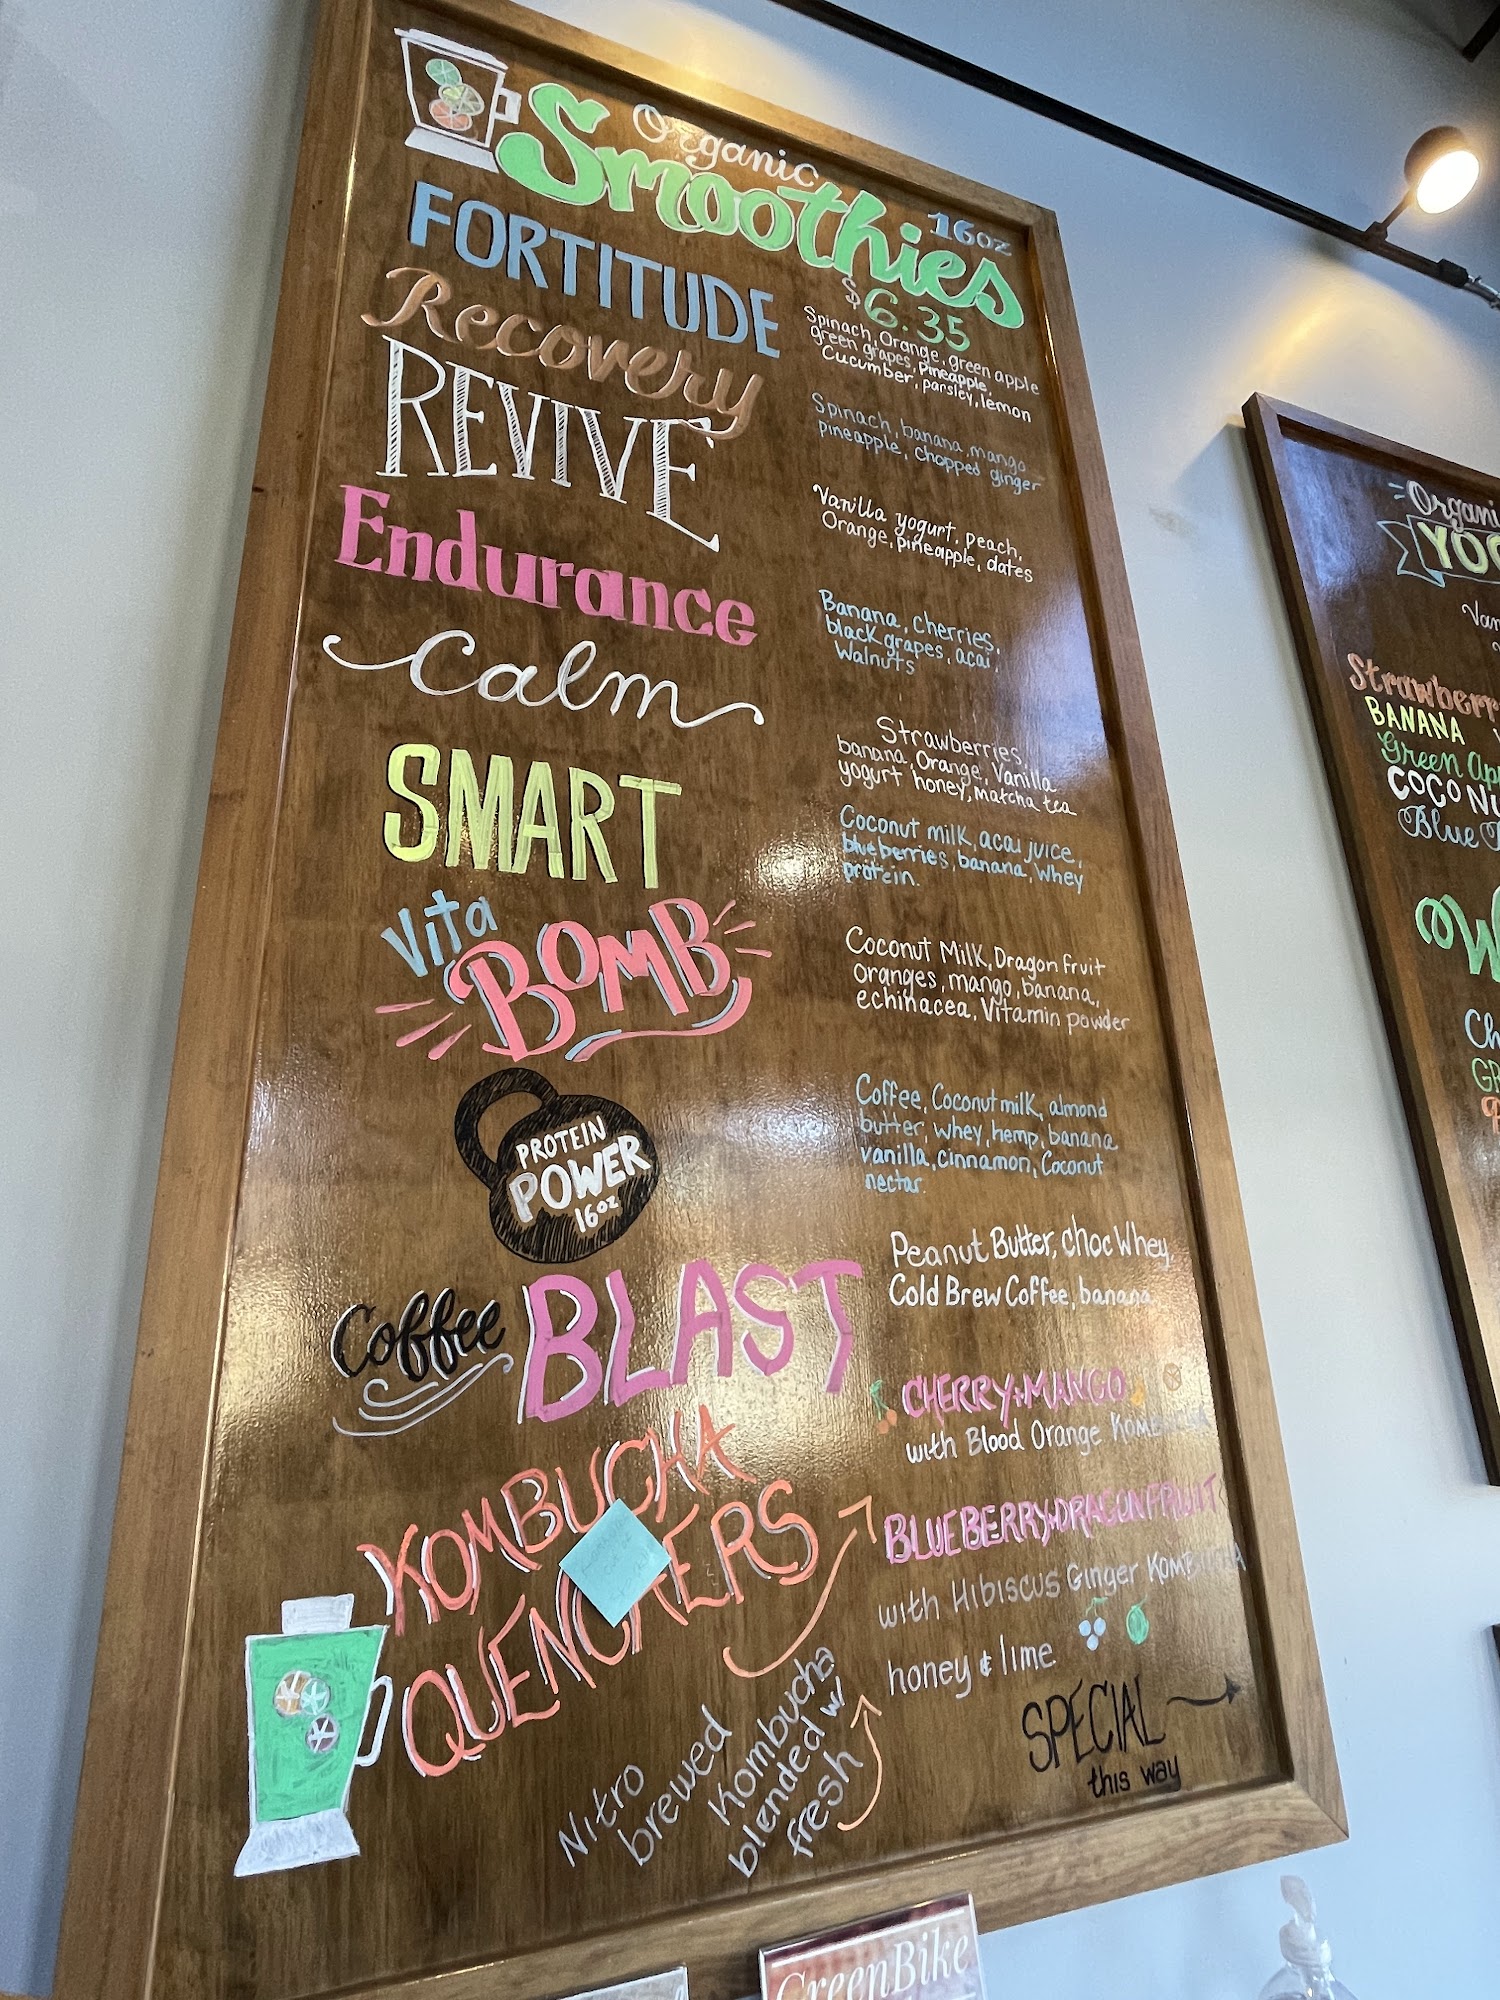 Organic
Smoothies
16oz
$6.35
FORTITUDE
Spinach, Orange, green apple
green grapes, Pineapple,
Cucumber, parsley, lemon
Recovery
Spinach, banana, mango
pineapple, chopped ginger
REVIVE
Vanilla yogurt, peach,
Orange, pineapple, dates
Endurance
Banana, cherries,
black grapes, acai,
Walnuts
Calm
Strawberries,
banana, Orange, Vanilla
yogurt honey, matcha tea
SMART
Coconut milk, acai juice,
blueberries, banana, whey
protein.
Vita
BOMB
Coconut Milk, Dragon fruit
oranges, mango, banana,
echinacea, Vitamin powder
PROTEIN
POWER
16oz
Coffee, Coconut milk, almond
butter, whey, hemp, banana
vanilla, cinnamon, Coconut
nectar.
Coffee BLAST
Peanut Butter, choc Whey,
Cold Brew Coffee, banana
KOMBUCHA
QUENCHERS
CHERRY+MANGO
with Blood Orange KOMBUCHA
BLUEBERRY+DRAGONFRUIT
with Hibiscus Ginger KOMBUCHA
honey & lime
Nitro
brewed
Kombucha
blended w/
fresh
SPECIAL
this way
YO
Strawberr
BANANA
Green Ap
COCO
Blue
GreenBike